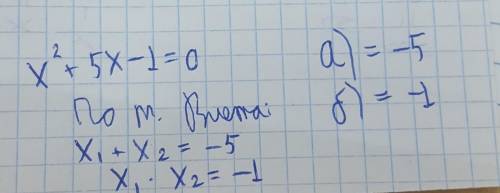 x² + 5x - 1 = 0
По т. Виета:
x₁ + x₂ = -5
x₁ · x₂ = -1
а) = -5
б) = -1